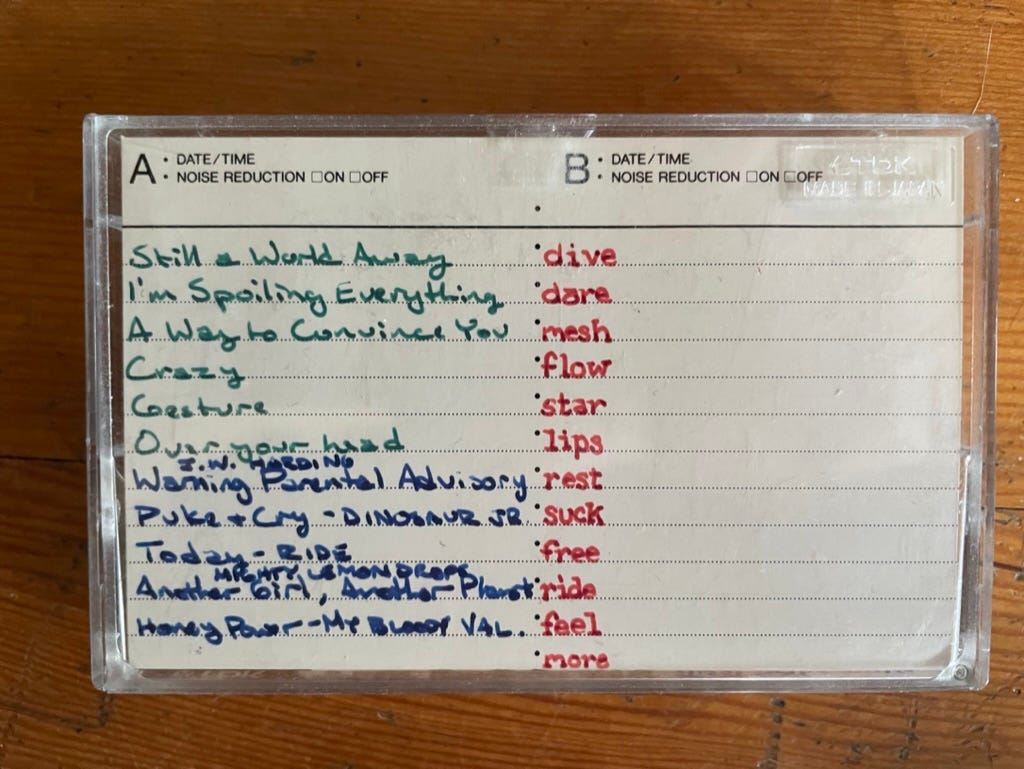 A • DATE/TIME
• NOISE REDUCTION □ON □OFF
Still a World Away
I'm Spoiling Everything
A Way to Convince You
Crazy
Gesture
Over your head
J.W. HARDING
Warning Parental Advisory
Puke + Cry - DINOSAUR JR.
Today - RIDE
MIGHTY LEMON DROPS
Another Girl, Another Planet
Honey Power - MY BLOODY VAL.
B • DATE/TIME
• NOISE REDUCTION □ON □OFF
MADE IN JAPAN
dive
dare
mesh
flow
star
lips
rest
suck
free
ride
feel
more